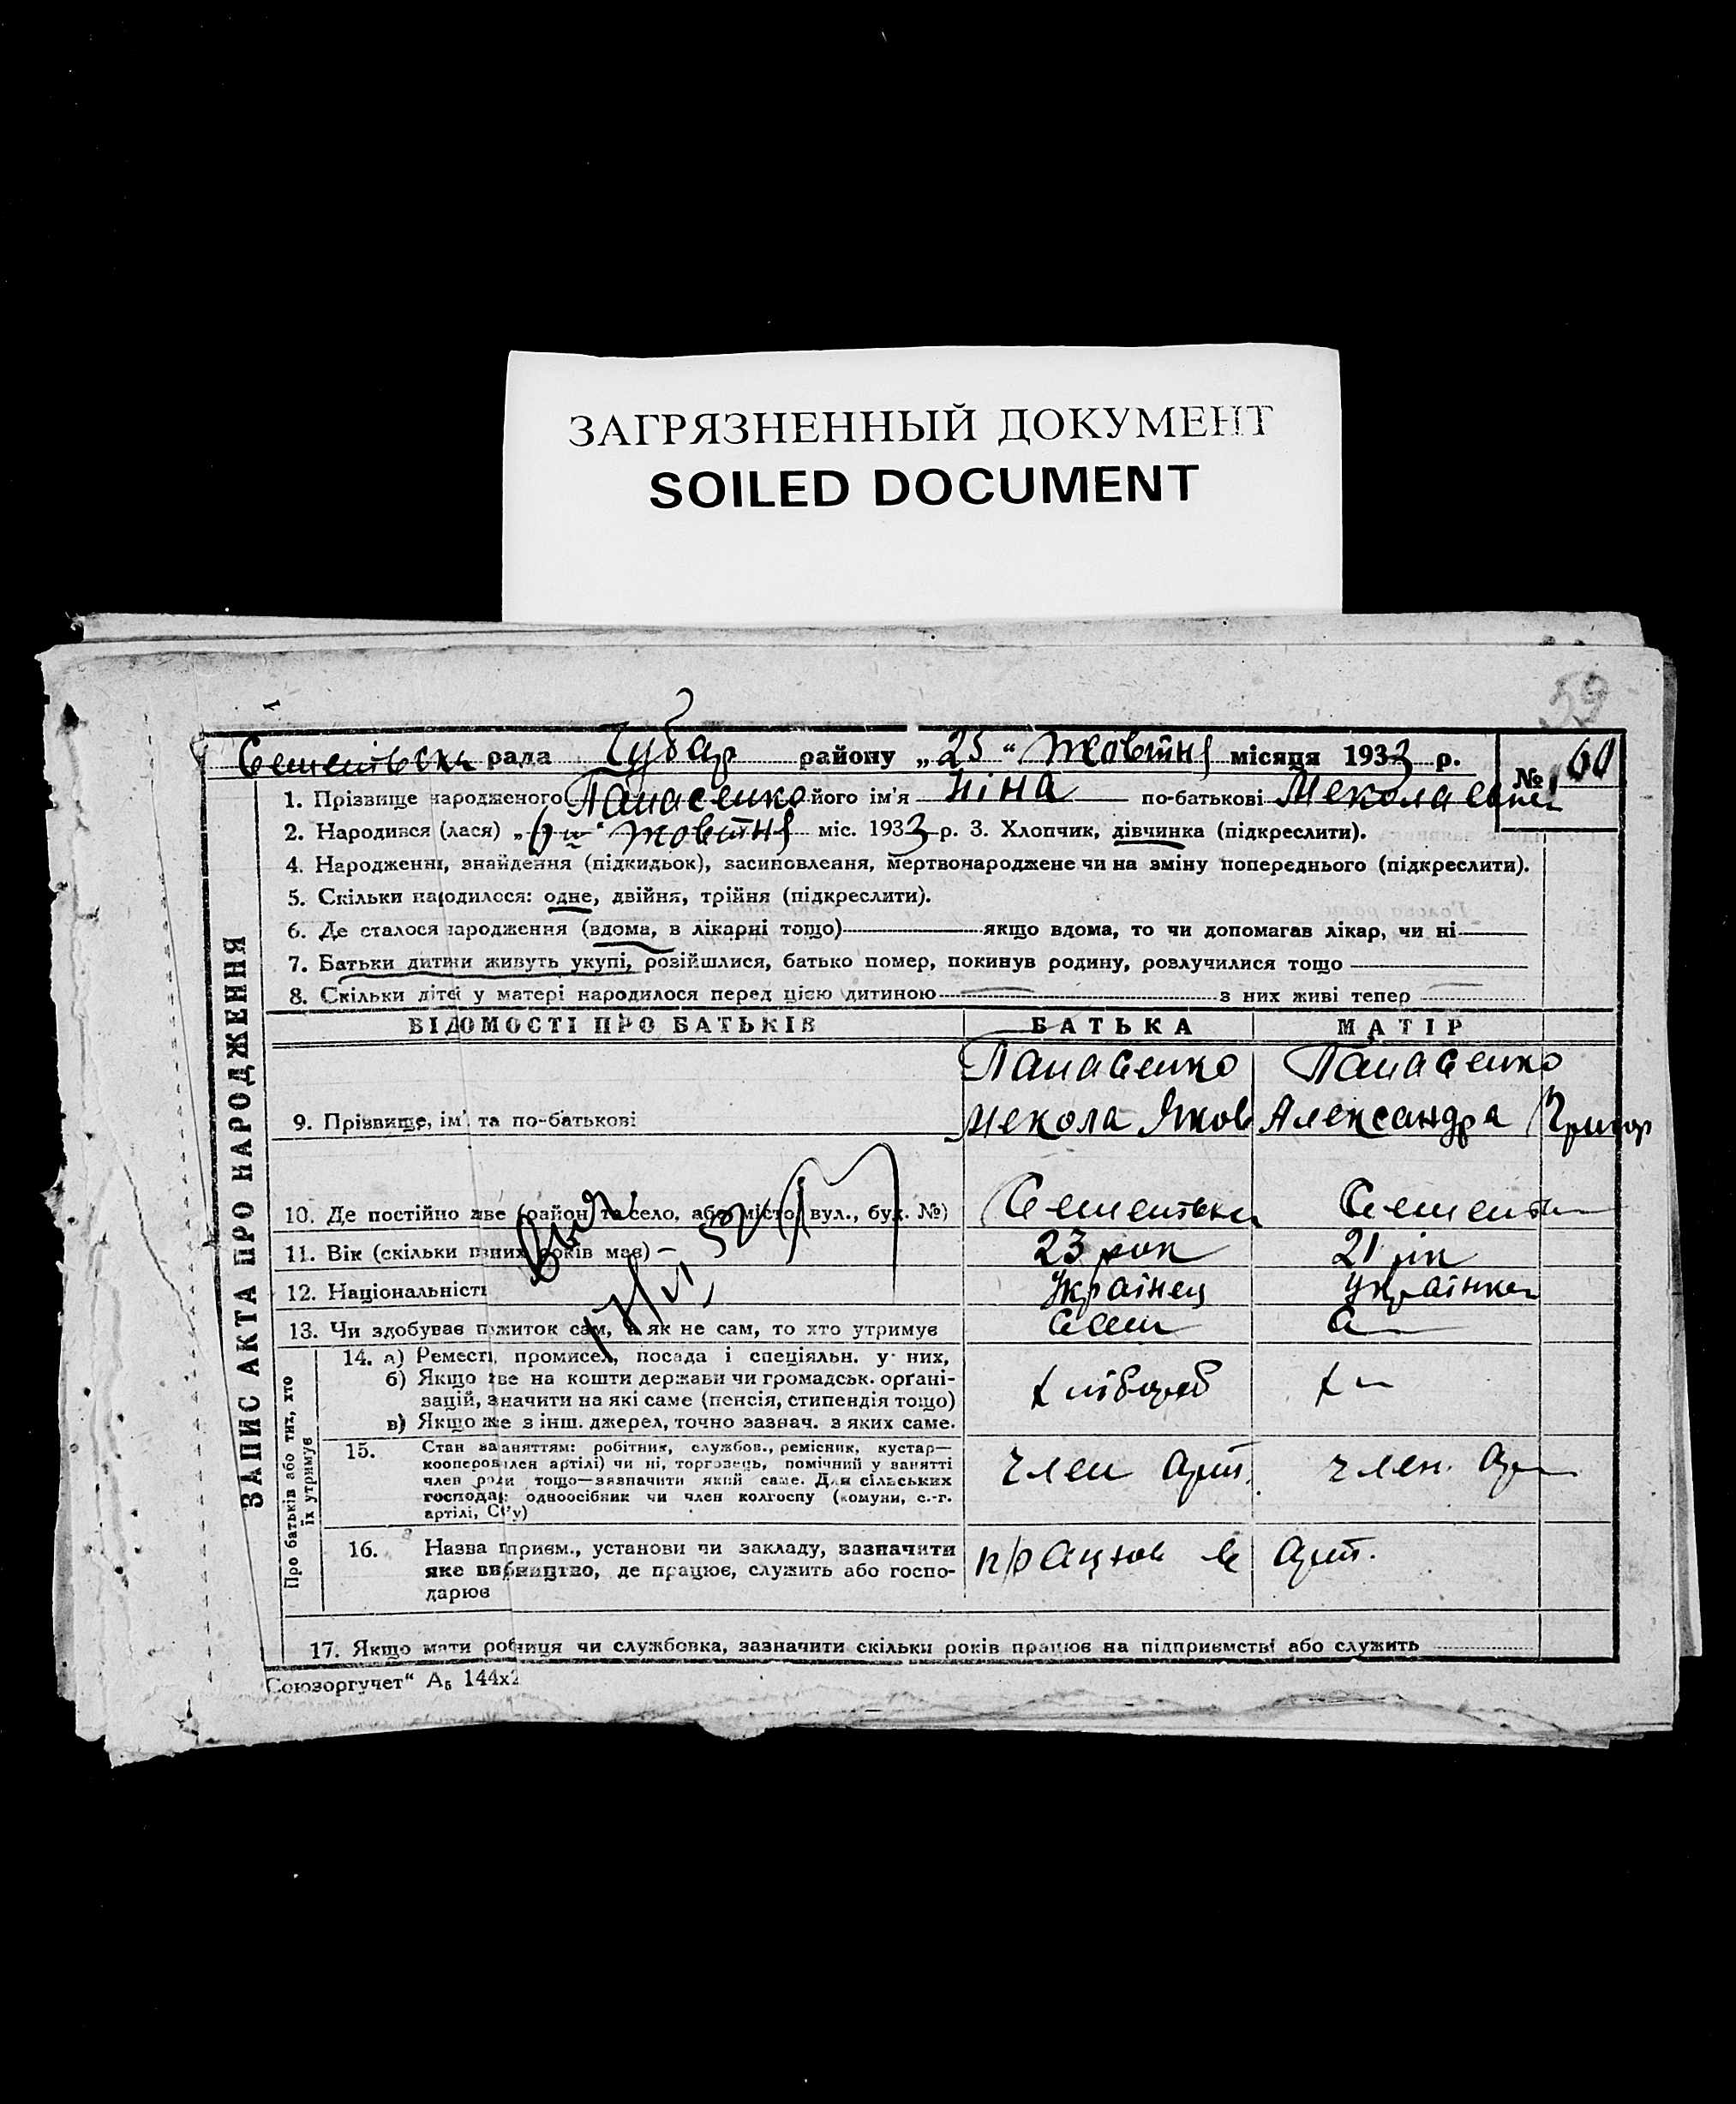 ЗАГРЯЗНЕННЫЙ ДОКУМЕНТ
SOILED DOCUMENT
59
рада Чубар району „25“ Жовтня місяця 1933 р. № 60
1. Прізвище народженого Панасенко його ім'я Ніна по-батькові
2. Народився (лася) „ “ Жовтня міс. 1933 р. 3. Хлопчик, дівчинка (підкреслити).
4. Народженні, знайдення (підкидьок), засиновлення, мертвонароджене чи на зміну попереднього (підкреслити).
5. Скільки народилося: одне, двійня, трійня (підкреслити).
6. Де сталося народження (вдома, в лікарні тощо) якщо вдома, то чи допомагав лікар, чи ні
7. Батьки дитини живуть укупі, розійшлися, батько помер, покинув родину, розлучилися тощо
8. Скільки дітей у матері народилося перед цією дитиною з них живі тепер
ЗАПИС АКТА ПРО НАРОДЖЕННЯ
ВІДОМОСТІ ПРО БАТЬКІВ БАТЬКА МАТІР
Панасенко Панасенко
9. Прізвище, ім' та по-батькові Мекола Яков Александра Григор
10. Де постійно живе (район та село, або місто, вул., буд. №)
11. Вік (скільки повних років має) — 23 рок 21 рік
12. Національність Українец Українка
13. Чи здобуває пожиток сам, а як не сам, то хто утримує сам с
Про батьків або тих, хто їх утримує
14. а) Ремесло, промисел, посада і спеціяльн. у них,
б) Якщо живе на кошти держави чи громадськ. органі-
зацій, значити на які саме (пенсія, стипендія тощо) хлібороб х
в) Якщо же з інш. джерел, точно зазнач. з яких саме.
15. Стан за заняттям: робітник, службов., ремісник, кустар—
кооперов. член артілі) чи ні, торговець, помічний у занятті
член родини тощо—зазначити який саме. Для сільських член арт. член. ар
господар: одноосібник чи член колгоспу (комуни, с.-г.
артілі,
16. Назва підприєм., установи чи закладу, зазначити працюв в арт.
яке виробництво, де працює, служить або госпо-
дарює
17. Якщо мати робітниця чи службовка, зазначити скільки років працює на підприємстві або служить
Союзоргучет“ А₅ 144x2